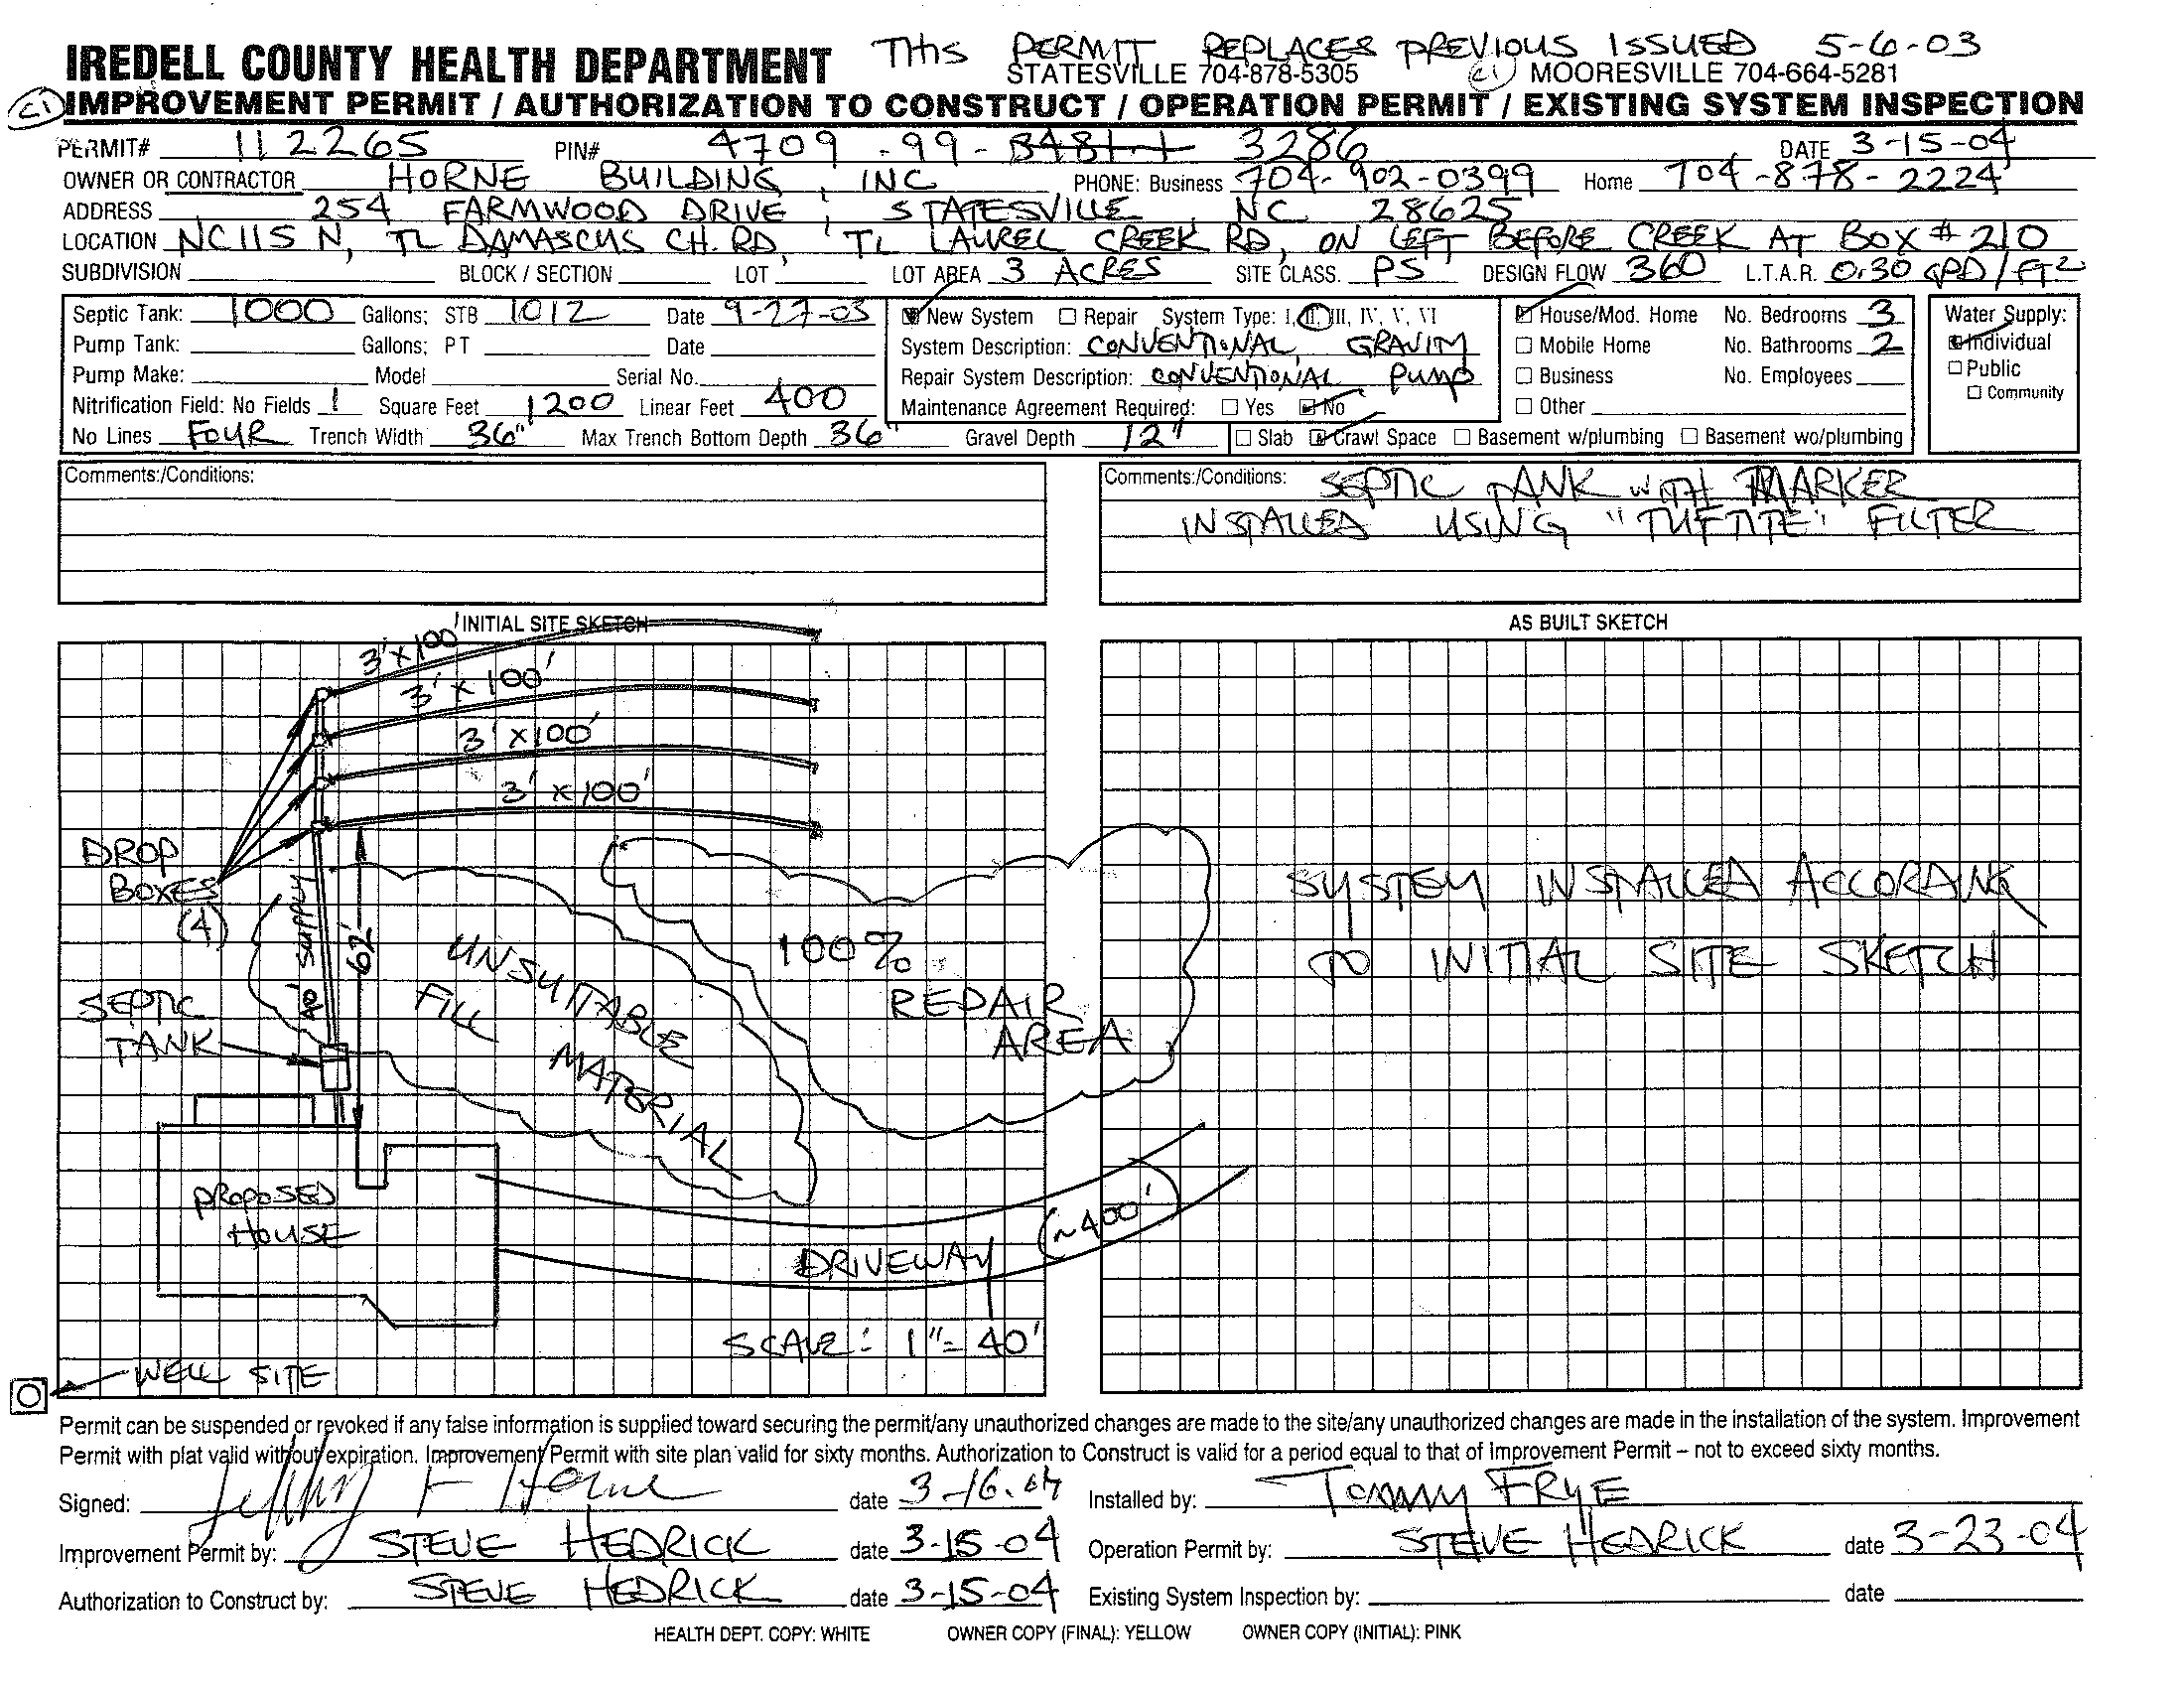 THIS PERMIT REPLACES PREVIOUS ISSUED 5-6-03
IREDELL COUNTY HEALTH DEPARTMENT STATESVILLE 704-878-5305 MOORESVILLE 704-664-5281
IMPROVEMENT PERMIT / AUTHORIZATION TO CONSTRUCT / OPERATION PERMIT / EXISTING SYSTEM INSPECTION
PERMIT# 112265 PIN# 4709-99- 3286 DATE 3-15-04
OWNER OR CONTRACTOR HORNE BUILDING, INC PHONE: Business 704-902-0399 Home 704-878-2224
ADDRESS 254 FARMWOOD DRIVE, STATESVILLE, NC 28625
LOCATION NC115 N, TL DAMASCUS CH. RD, TL LAUREL CREEK RD, ON LEFT BEFORE CREEK AT BOX # 210
SUBDIVISION BLOCK / SECTION LOT LOT AREA 3 ACRES SITE CLASS. PS DESIGN FLOW 360 L.T.A.R. 0.30 GPD/FT2
Septic Tank: 1000 Gallons; STB 1012 Date 9-27-03
Pump Tank: Gallons; PT Date
Pump Make: Model Serial No.
Nitrification Field: No Fields 1 Square Feet 1200 Linear Feet 400
No Lines FOUR Trench Width 36" Max Trench Bottom Depth 36" Gravel Depth 12"
New System Repair System Type: I, II, III, IV, V, VI
System Description: CONVENTIONAL, GRAVITY
Repair System Description: CONVENTIONAL PUMP
Maintenance Agreement Required: Yes No
House/Mod. Home No. Bedrooms 3
Mobile Home No. Bathrooms 2
Business No. Employees
Other
Slab Crawl Space Basement w/plumbing Basement wo/plumbing
Water Supply:
Individual
Public
Community
Comments:/Conditions:
Comments:/Conditions: SEPTIC TANK WITH MARKER
INSTALLED USING "TUFTITE" FILTER
INITIAL SITE SKETCH
3'x100'
3'x100'
3'x100'
3'x100'
DROP
BOXES
(4)
40' SUPPLY
62'
UNSUITABLE
FILL
MATERIAL
100%
REPAIR
AREA
SEPTIC
TANK
PROPOSED
HOUSE
(~400')
DRIVEWAY
SCALE: 1"=40'
WELL SITE
AS BUILT SKETCH
SYSTEM INSTALLED ACCORDING
TO INITIAL SITE SKETCH
Permit can be suspended or revoked if any false information is supplied toward securing the permit/any unauthorized changes are made to the site/any unauthorized changes are made in the installation of the system. Improvement
Permit with plat valid without expiration. Improvement Permit with site plan valid for sixty months. Authorization to Construct is valid for a period equal to that of Improvement Permit – not to exceed sixty months.
Signed: Jeffrey F Horne date 3-16-04 Installed by: TOMMY FRYE
Improvement Permit by: STEVE HEDRICK date 3-15-04 Operation Permit by: STEVE HEDRICK date 3-23-04
Authorization to Construct by: STEVE HEDRICK date 3-15-04 Existing System Inspection by: date
HEALTH DEPT. COPY: WHITE OWNER COPY (FINAL): YELLOW OWNER COPY (INITIAL): PINK